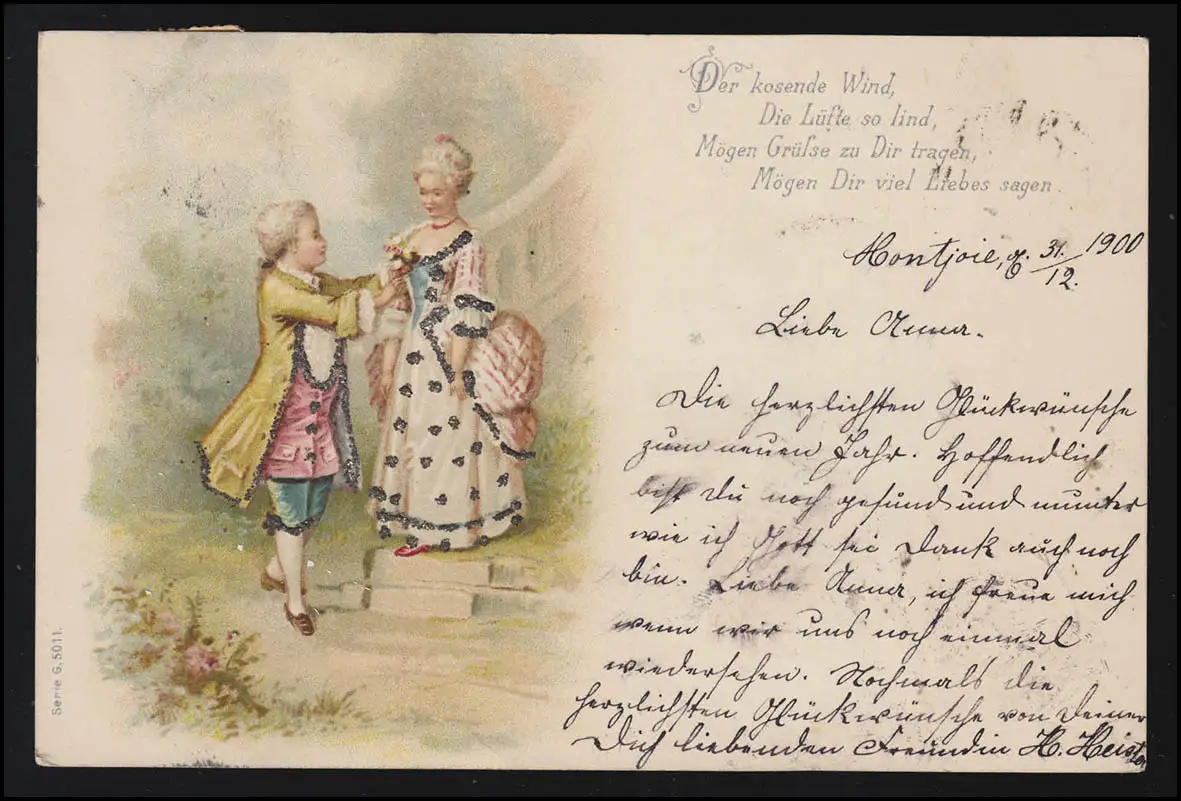 Der kosende Wind,
Die Lüfte so lind,
Mögen Grüſse zu Dir tragen,
Mögen Dir viel Liebes sagen
Montjoie, d. 31./12. 1900
Liebe Anna.
Die herzlichsten Glückwünsche
zum neuen Jahr. Hoffendlich
bist du noch gesund und munter
wie ich Gott sei Dank auch noch
bin. Liebe Anna, ich freue mich
wenn wir uns noch einmal
wiedersehen. Nochmals die
herzlichsten Glückwünsche von Deiner
Dich liebenden Freundin H. Heister
Serie G. 5011.